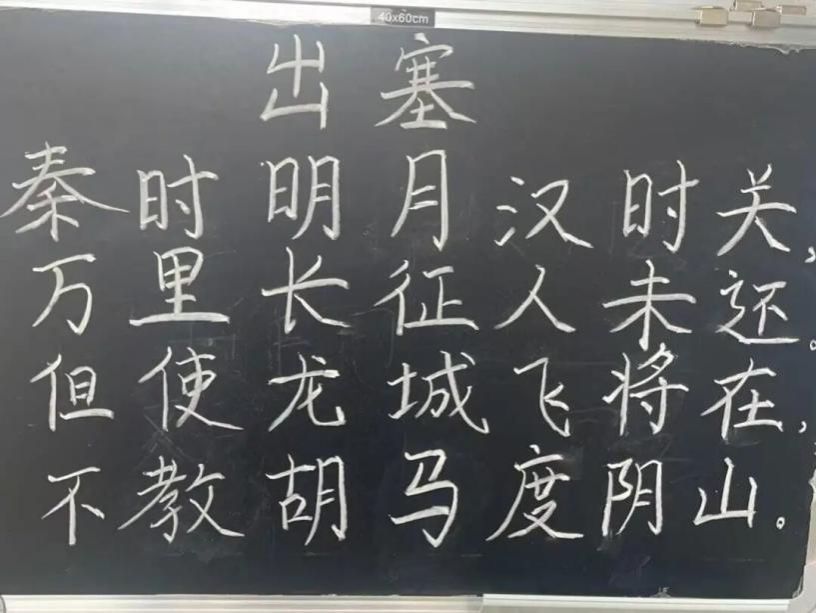 40x60cm
出塞
秦时明月汉时关,
万里长征人未还。
但使龙城飞将在,
不教胡马度阴山。